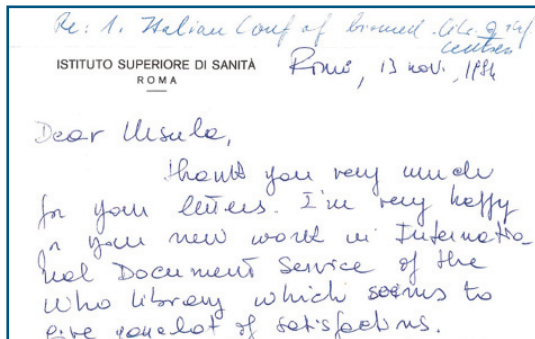 Re: 1. Italian Conf of biomed. lib. & inf.
centres
ISTITUTO SUPERIORE DI SANITÀ
ROMA
Rome, 13 nov. 1984
Dear Ursula,
thank you very much
for your letters. I'm very happy
for your new work in Internatio-
nal Document Service of the
Who library which seems to
give you a lot of satisfactions.